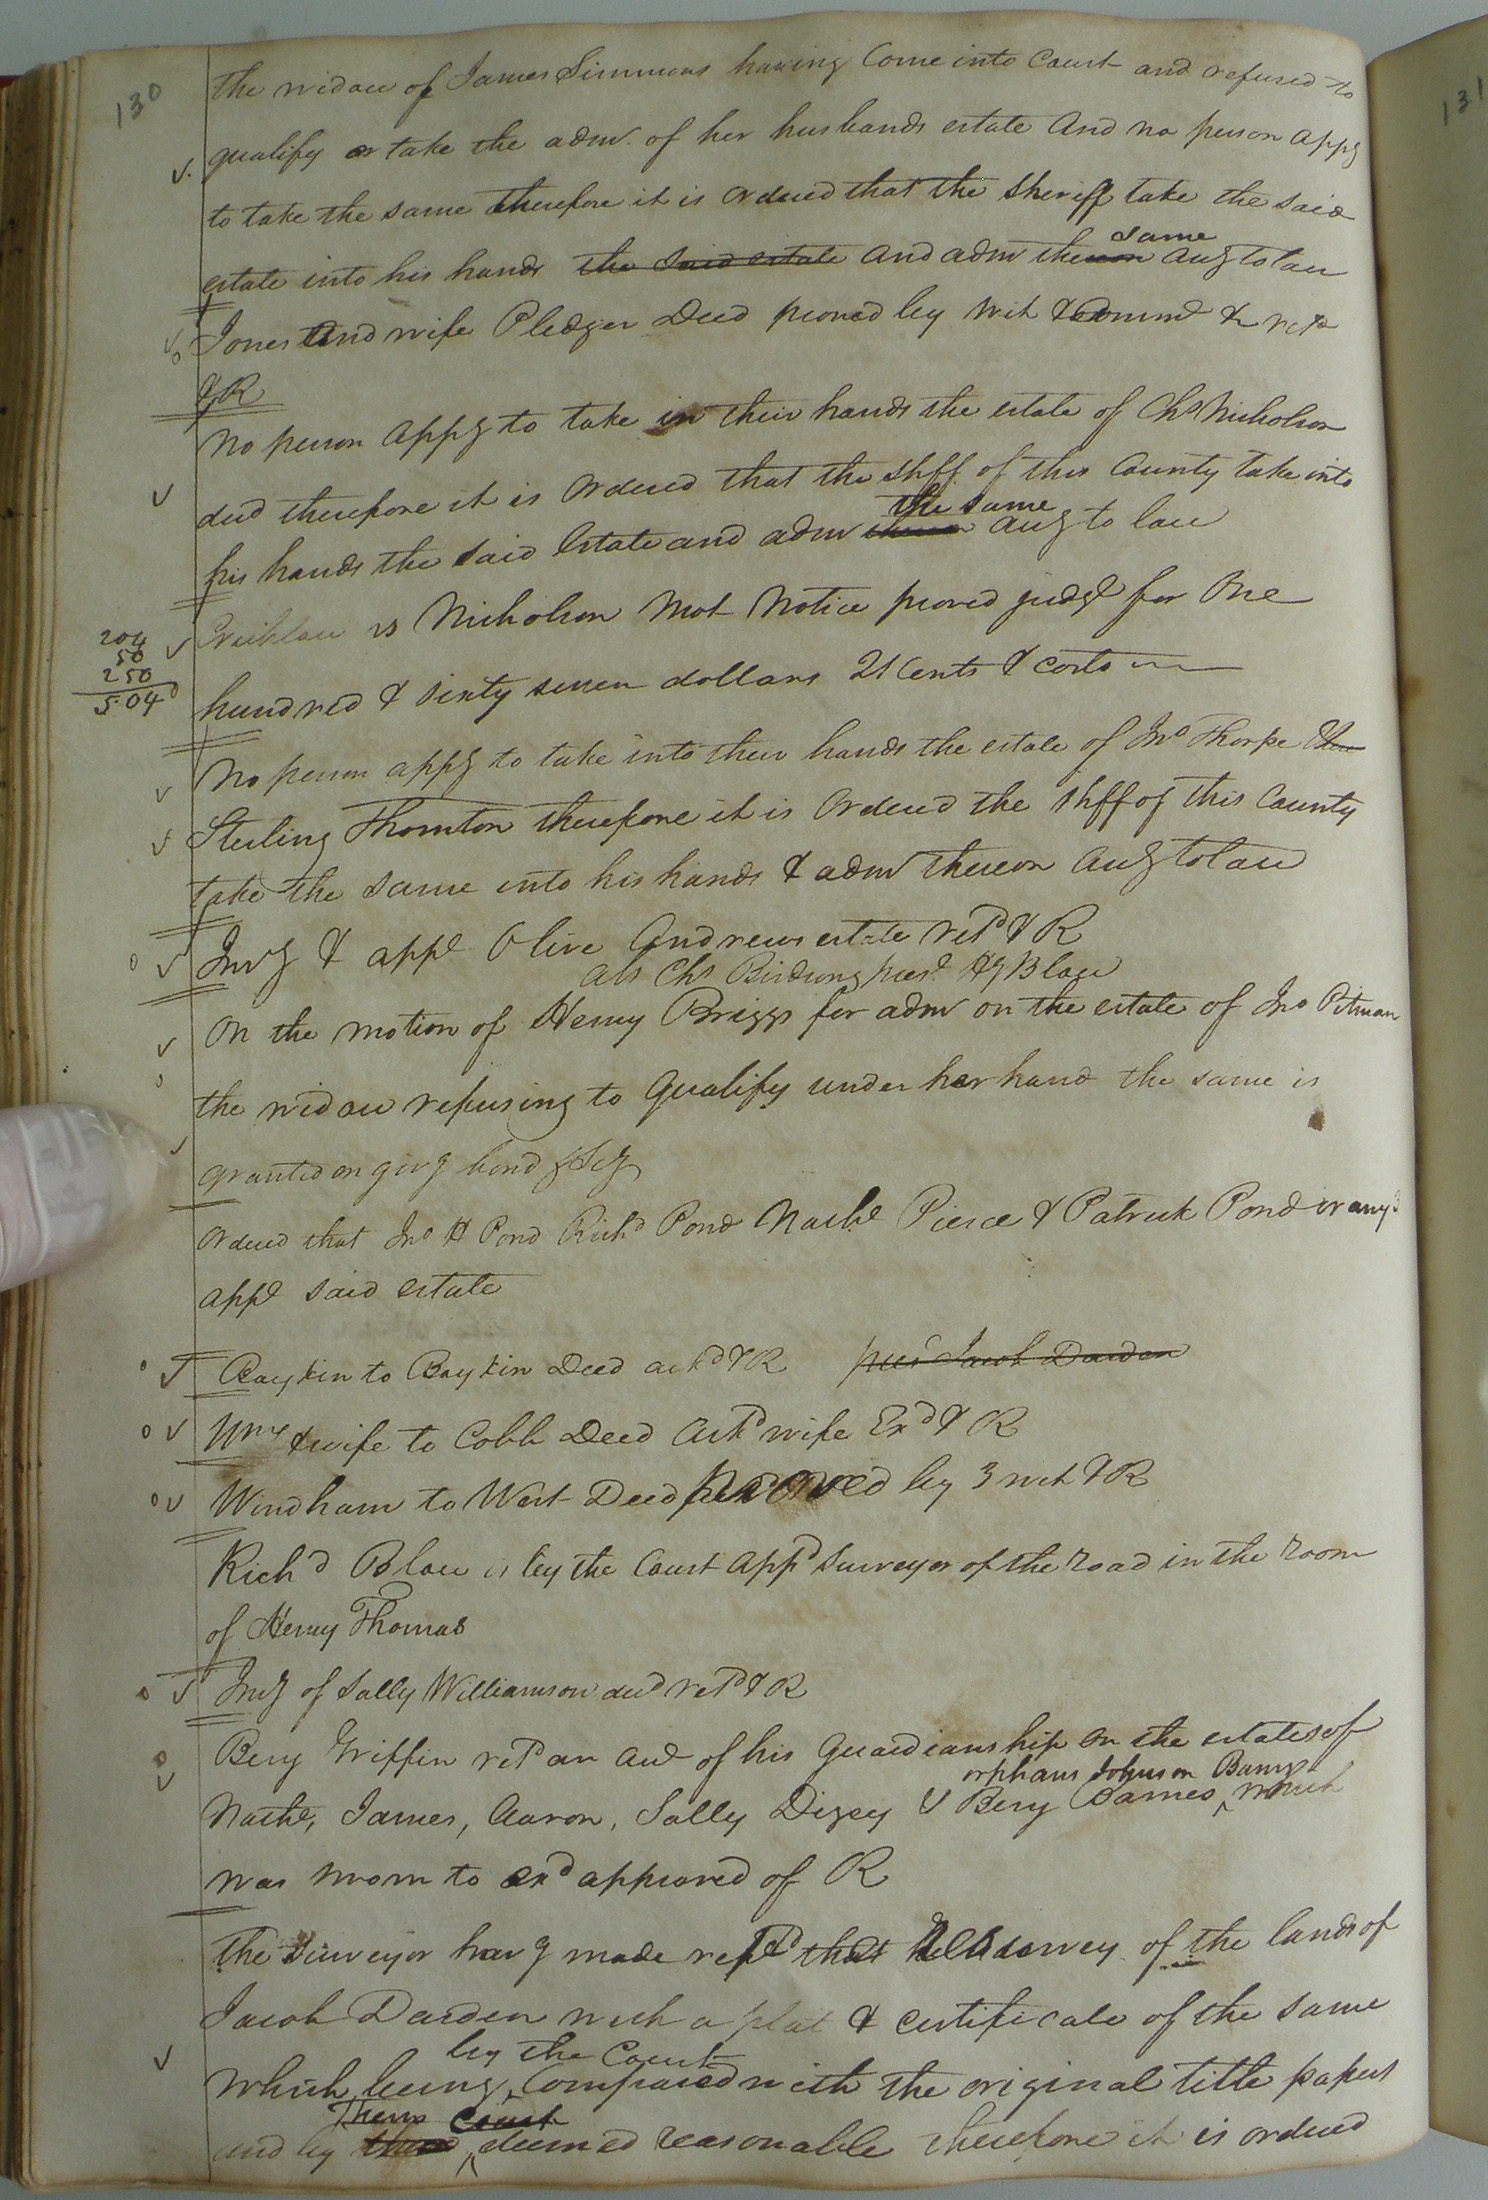 130
131
the widow of James Simmons having Come into Court and refused to
qualify or take the adm. of her husbands estate And no person appg
to take the same therefore it is Ordered that the Sheriff take the said
estate into his hands the said estate and adm the same acg to law
Jones And wife Pledger Deed proved by wit & Commn & retd
& R
No person appg to take in their hands the estate of Chs Nicholson
decd therefore it is Ordered that the Shff of this County take into
his hands the said Estate and adm the same acg to law
vs Nicholson Mot Notice proved judgt for One
204
50
250
504
hundred & sixty seven dollars 21 Cents & costs
No person appg to take into their hands the estate of Jno Thorpe
Sterling Thornton therefore it is Ordered the Shff of this County
take the same into his hands & adm thereon acg to law
Invy & appt Olive Andrews estate retd & R
abs Chs Birdsong prest Hy Blow
On the motion of Henry Briggs for adm on the estate of Jno Pitman
the widow refusing to Qualify under her hand the same is
granted on givg bond & Scy
Ordered that Jno H Pond Richd Pond Nathl Pierce & Patrick Pond or any 3
appe said estate
Boykin to Boykin Deed ackd & R prest Jacob Darden
& wife to Cobb Deed Ackd wife Exd & R
Windham to West Deed proved by 3 wit & R
Richd Blow is by the Court appd Surveyor of the road in the room
of Henry Thomas
Invy of Sally Williamson decd retd & R
Beny Griffin retd an acct of his Guardianship on the estates of
orphans Johnson Barnes
Nathl, James, Aaron, Sally Digsey & Beny Barnes which
was sworn to exd approved of R
The Surveyor havg made rept that survey of the lands of
Jacob Darden with a plat & certificate of the same
by the Court
which being Compared with the original title papers
Court
and by deemed reasonable therefore it is ordered